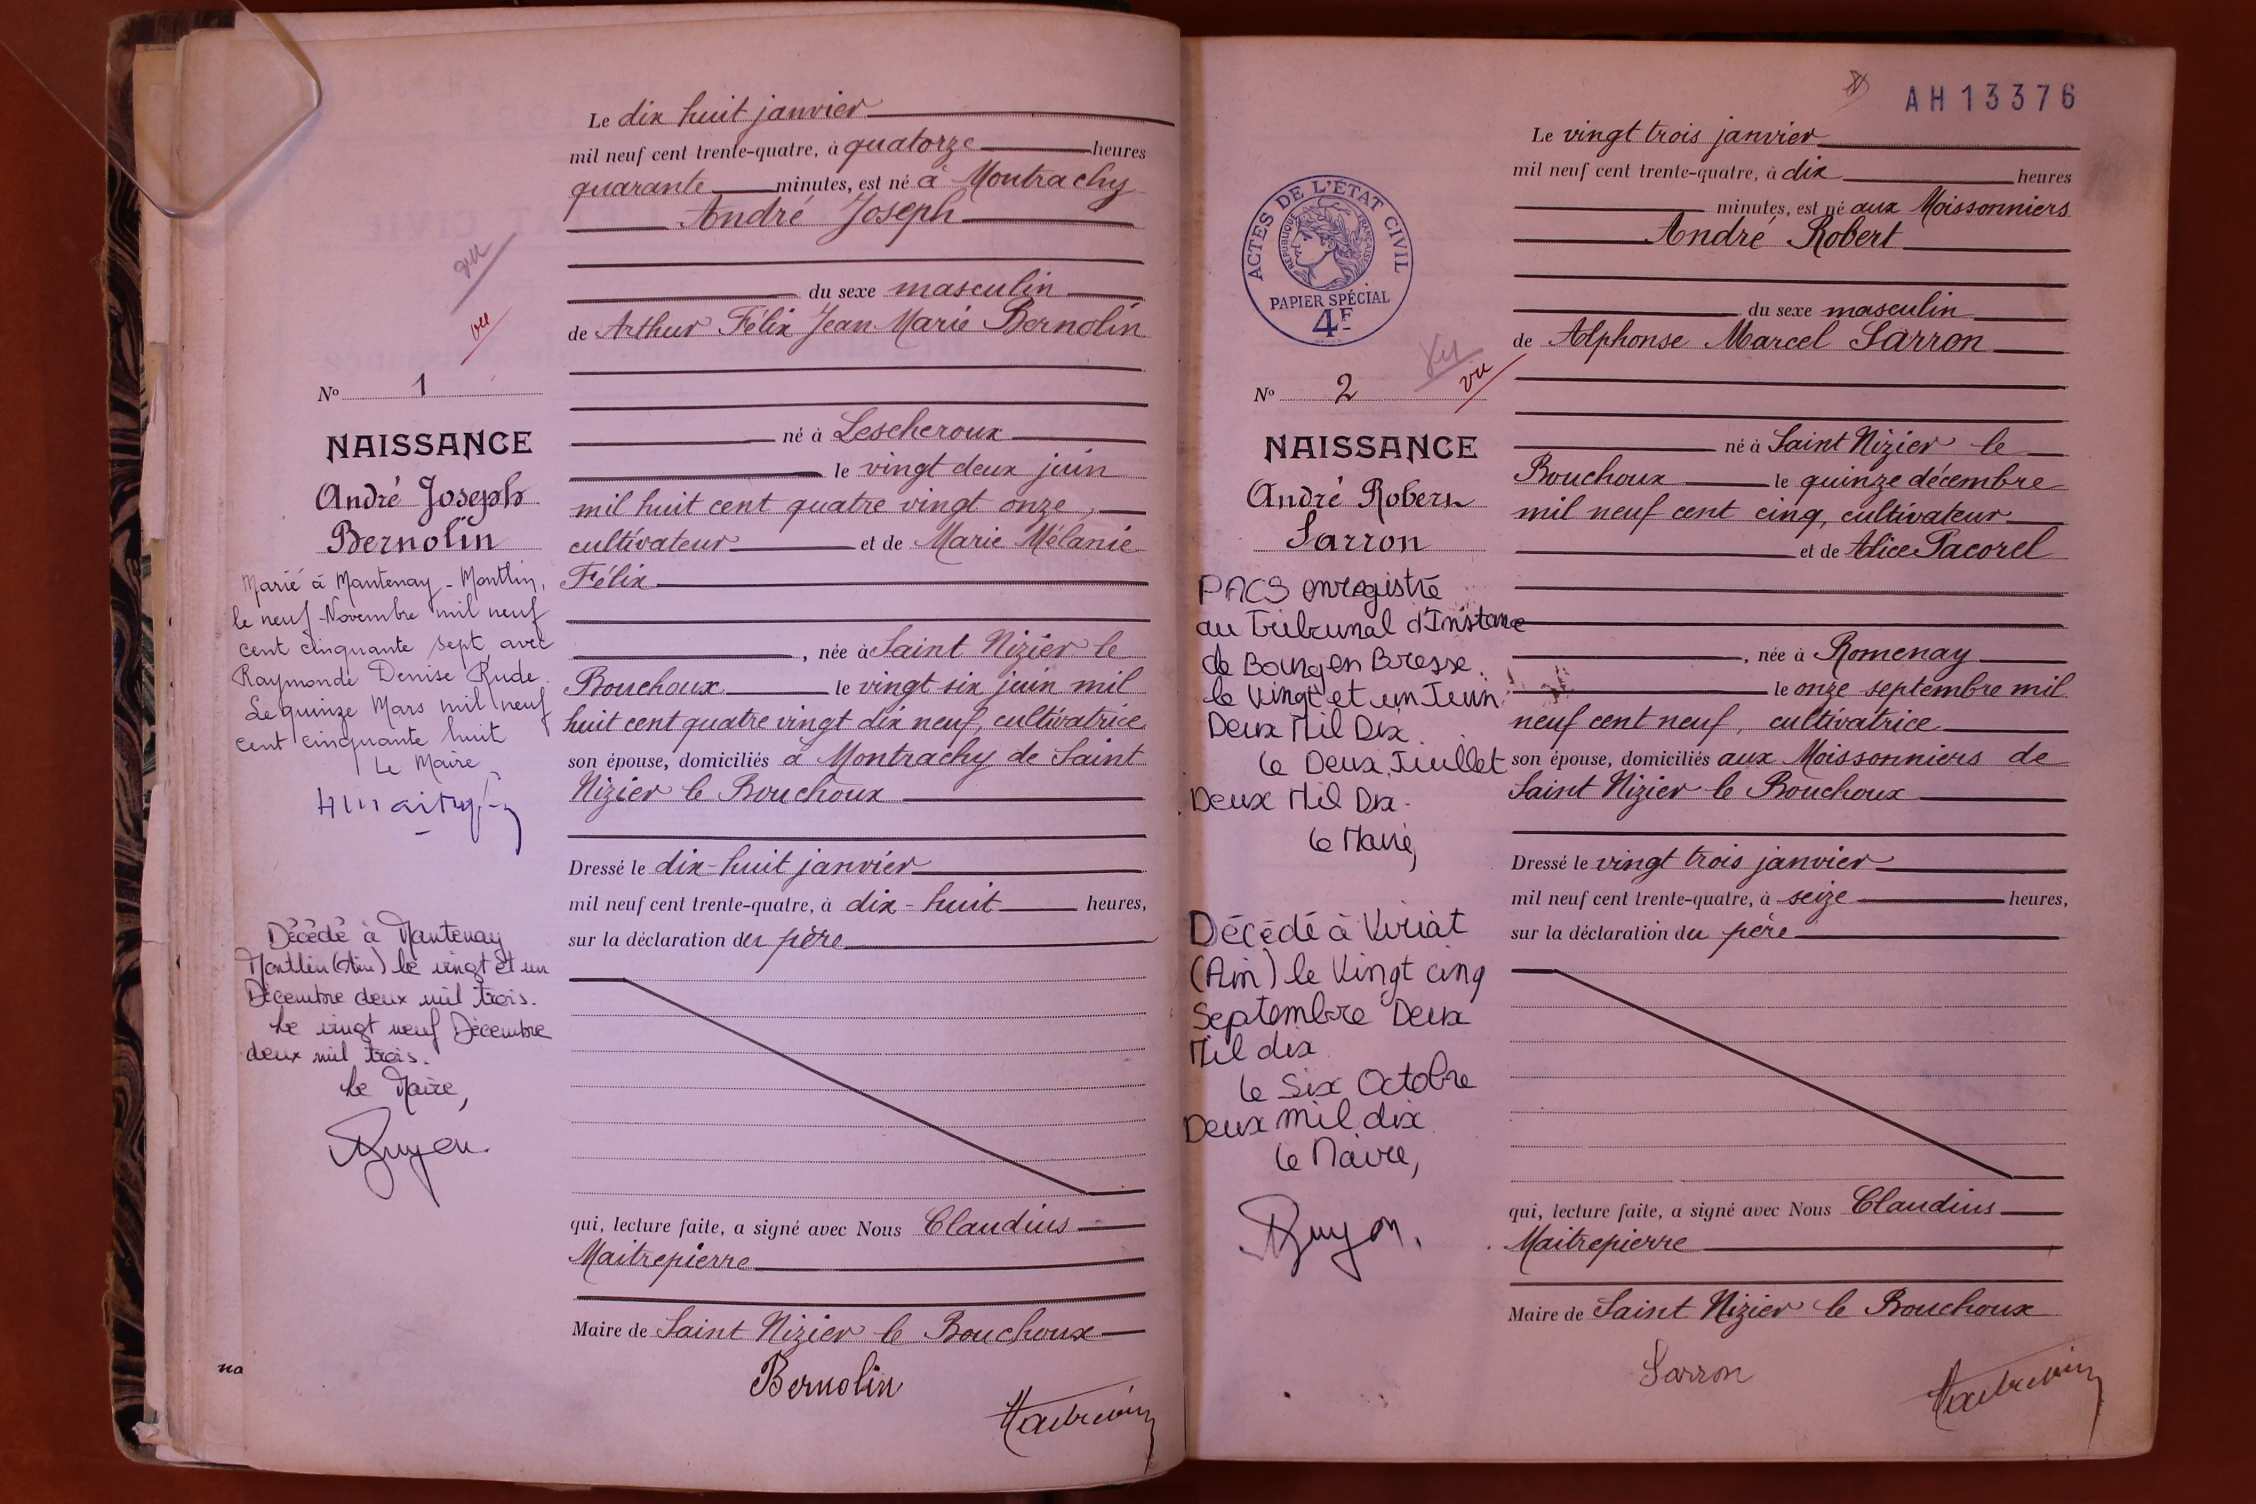 Le dix huit janvier
mil neuf cent trente-quatre, à quatorze heures
quarante minutes, est né à Montrachy
André Joseph
du sexe masculin
de Arthur Félix Jean Marie Bernolin
né à Lescheroux
le vingt deux juin
mil huit cent quatre vingt onze,
cultivateur et de Marie Mélanie
Félix
, née à Saint Nizier le
Bouchoux le vingt six juin mil
huit cent quatre vingt dix neuf, cultivatrice
son épouse, domiciliés à Montrachy de Saint
Nizier le Bouchoux
Dressé le dix-huit janvier
mil neuf cent trente-quatre, à dix-huit heures,
sur la déclaration du père
qui, lecture faite, a signé avec Nous Claudius
Maitrepierre
Maire de Saint Nizier le Bouchoux
Bernolin
vu
vu
No 1
NAISSANCE
André Joseph
Bernolin
Marié à Mantenay-Montlin,
le neuf Novembre mil neuf
cent cinquante sept avec
Raymonde Denise Rude.
Le quinze Mars mil neuf
cent cinquante huit
Le Maire
Décédé à Mantenay
Montlin (Ain) le vingt et un
Décembre deux mil trois.
Le vingt neuf Décembre
deux mil trois.
Le Maire,
na
AH13376
ACTES DE L'ETAT CIVIL
REPUBLIQUE FRANÇAISE
PAPIER SPÉCIAL
4F
vu
vu
No 2
NAISSANCE
André Robert
Sarron
PACS enregistré
au Tribunal d'Instance
de Bourg en Bresse.
le Vingt et un Juin
Deux Mil Dix
le Deux Juillet
Deux Mil Dix.
le Maire,
Décédé à Viriat
(Ain) le Vingt cinq
Septembre Deux
Mil dix
le Six Octobre
Deux mil dix
le Maire,
Le vingt trois janvier
mil neuf cent trente-quatre, à dix heures
minutes, est né aux Moissonniers
André Robert
du sexe masculin
de Alphonse Marcel Sarron
né à Saint Nizier le
Bouchoux le quinze décembre
mil neuf cent cinq, cultivateur
et de Alice Pacorel
, née à Romenay
le onze septembre mil
neuf cent neuf, cultivatrice
son épouse, domiciliés aux Moissonniers de
Saint Nizier le Bouchoux
Dressé le vingt trois janvier
mil neuf cent trente-quatre, à seize heures,
sur la déclaration du père
qui, lecture faite, a signé avec Nous Claudius
Maitrepierre
Maire de Saint Nizier le Bouchoux
Sarron